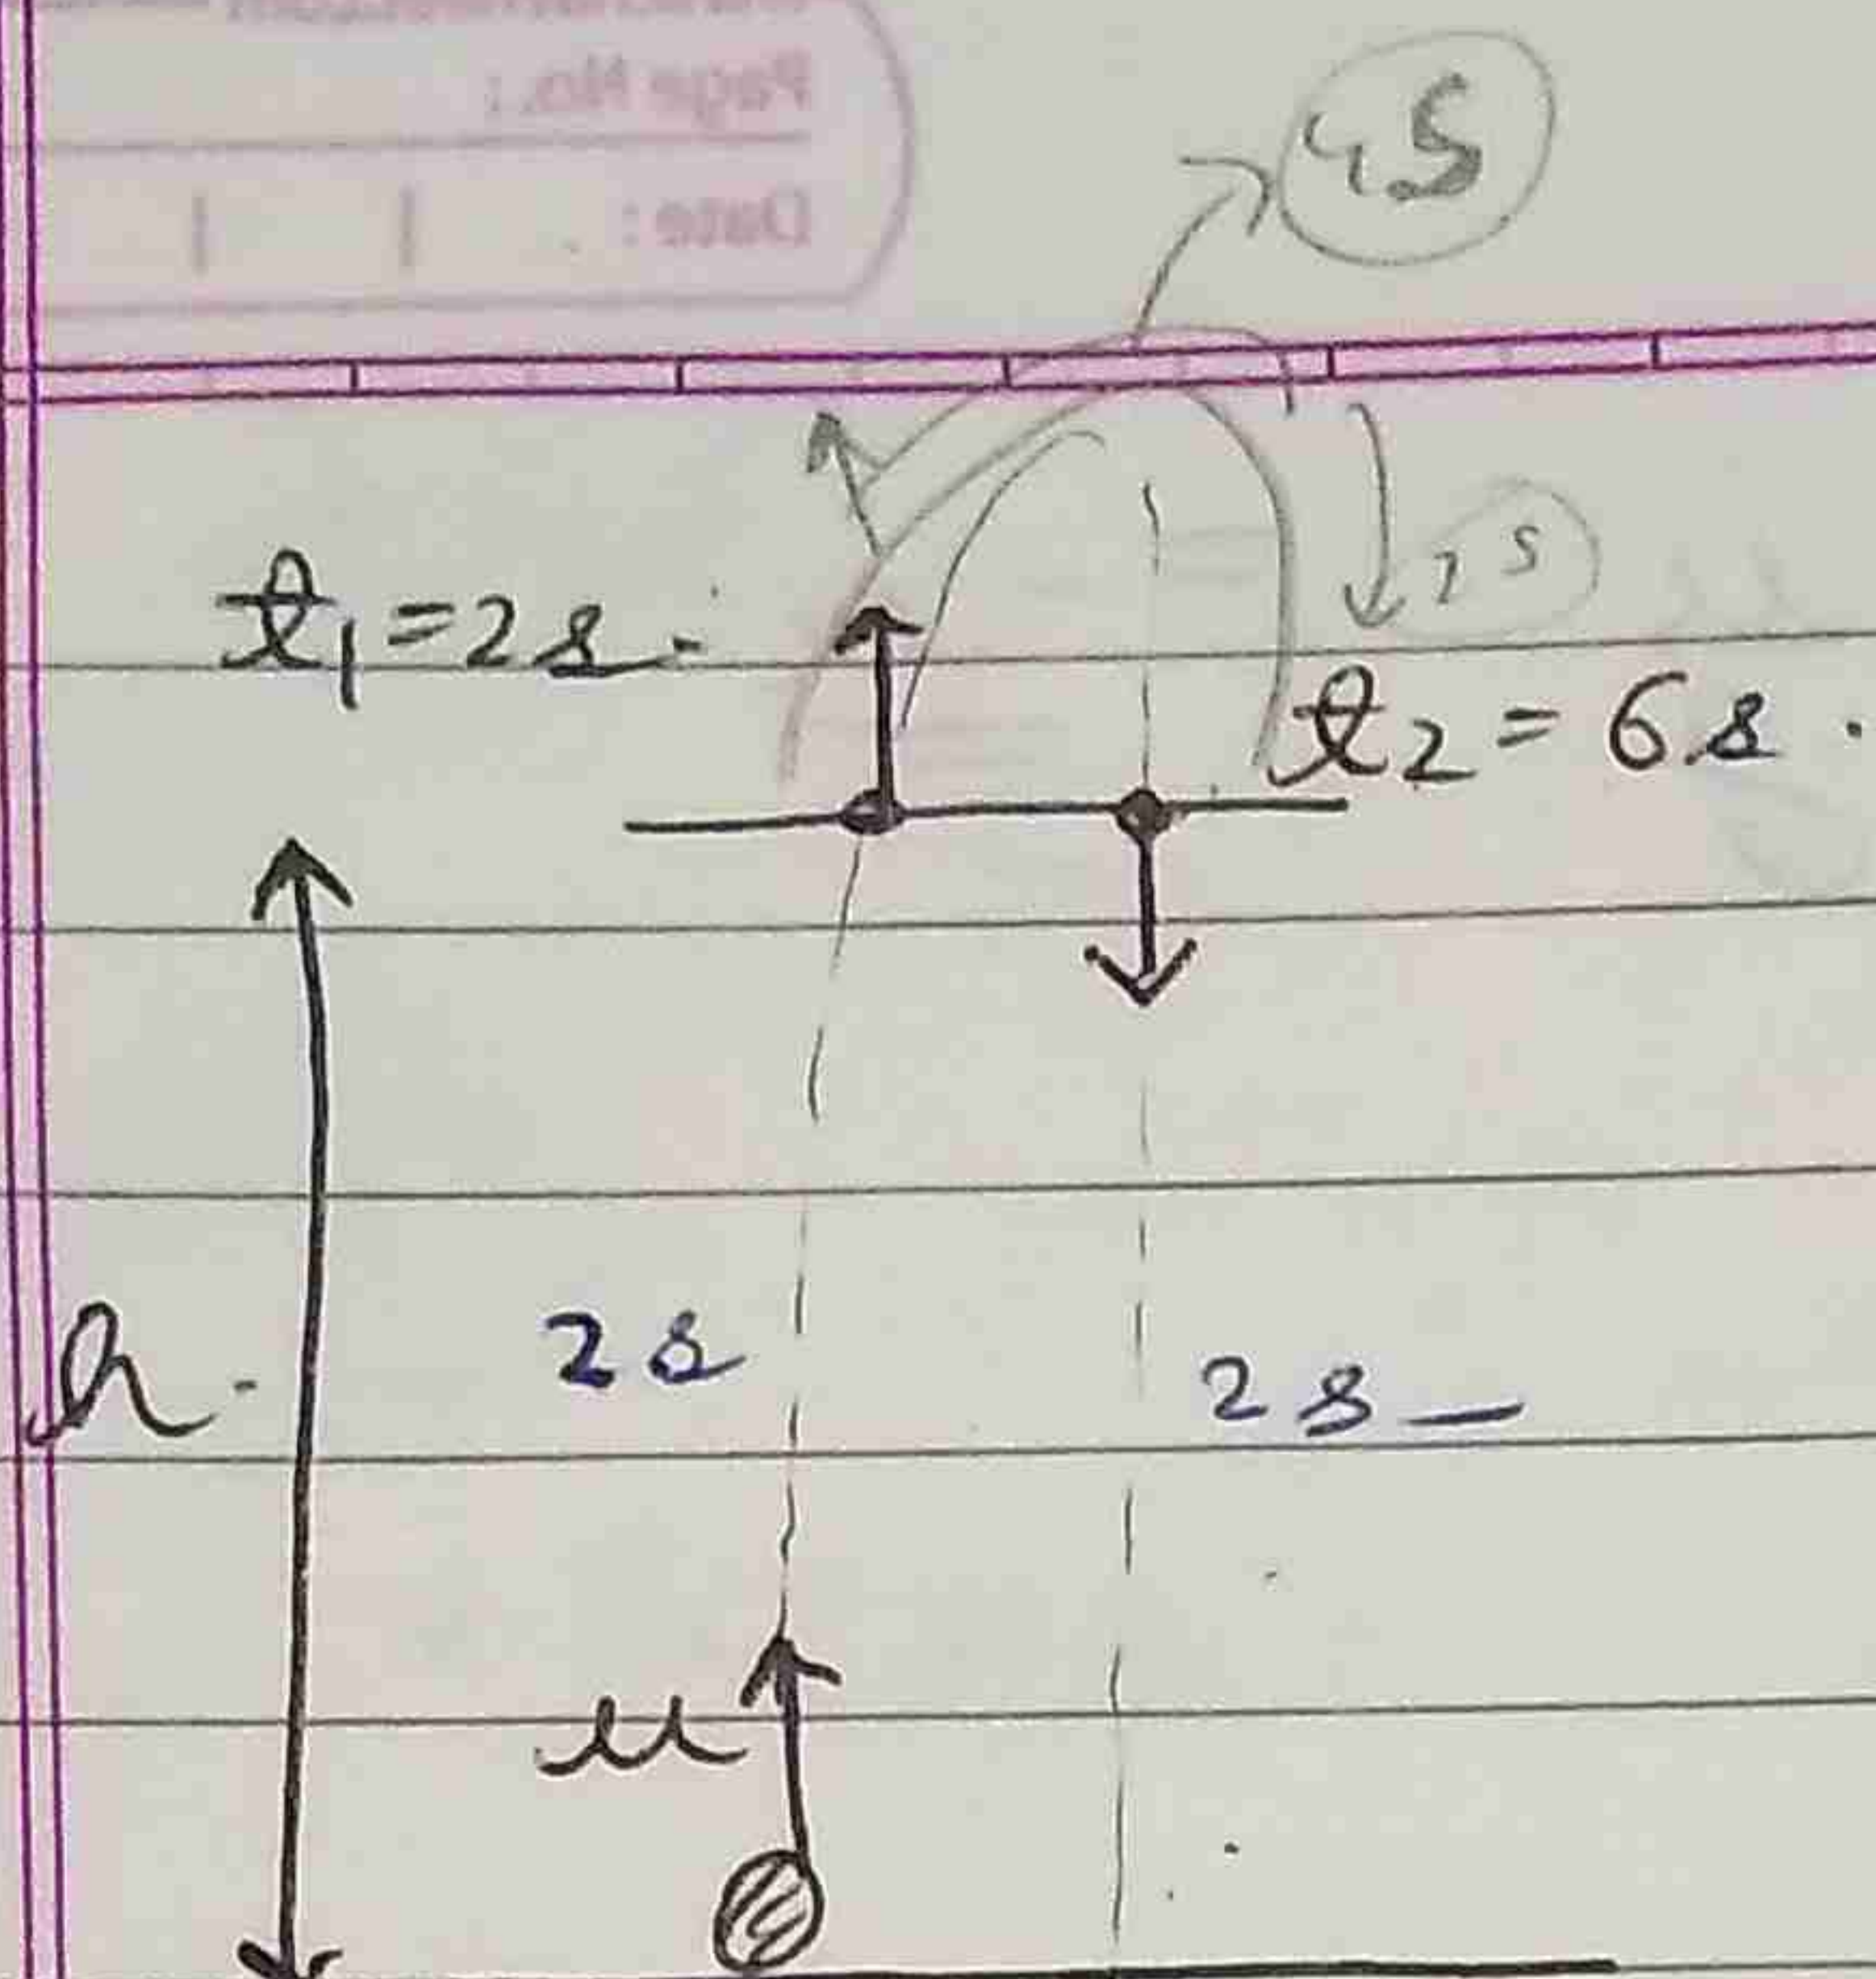 Page No.:
Date:
4S
2S
t₁ = 2s.
t₂ = 6s.
h.
2s
2s
u